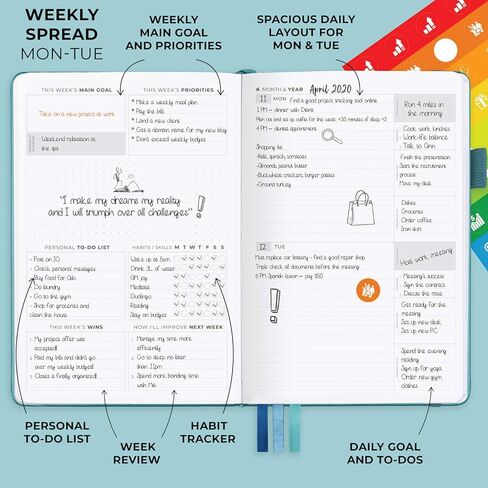 WEEKLY
SPREAD
MON-TUE
WEEKLY
MAIN GOAL
AND PRIORITIES
SPACIOUS DAILY
LAYOUT FOR
MON & TUE
THIS WEEK'S MAIN GOAL
Take on a new project at work
Weekend relaxation at
the spa
THIS WEEK'S PRIORITIES
* Make a weekly meal plan
* Pay the bills
* Land a new client
* Get a domain name for my new blog
* Don't exceed weekly budget
"I make my dreams my reality
and I will triumph over all challenges"
PERSONAL TO-DO LIST
- Post on IG
- Check personal messages
- Buy food for Ash
- Do laundry
- Go to the gym
- Shop for groceries and
clean the house
HABITS / SKILLS M T W T F S S
Wake up at 6am
Drink 3L of water
Gift joy
Meditate
Duolingo
Reading
Stay on budget
THIS WEEK'S WINS
1 My project offer was
accepted!
2 Paid my bills and didn't go
over my weekly budget!
3 Closet is finally organized!
HOW I'LL IMPROVE NEXT WEEK
1 Manage my time more
efficiently
2 Go to sleep no later
than 11pm
3 Spend more bonding time
with Me
MONTH & YEAR April 2020
11 MON Find a good project tracking tool online
1 PM - dinner with Diana
Plan out and set up outfits for the week, +20 minutes of sleep <3
4 PM - dentist appointment
Shopping list
-Kale, spinach, tomatoes
-Almonds, peanut butter
-Buckwheat crackers, burger patties
-Ground turkey
Run 4 miles in
the morning
Cook work lunches
Work-life balance
Talk to Ann
Finish the presentation
Start the recruitment
process
Move my desk
Dishes
Groceries
Order coffee
Iron shirts
12 TUE
Must replace car battery - find a good repair shop
Triple check all documents before the meeting
6 PM Spanish lesson - pay $50
Have work meeting
Meeting's success
Sign the contracts
Discuss the raise
Get ready for the
meeting
Set up new desk
Set up new PC
Spend the evening
reading
Sign up for yoga
Order new gym
clothes
PERSONAL
TO-DO LIST
WEEK
REVIEW
HABIT
TRACKER
DAILY GOAL
AND TO-DOS